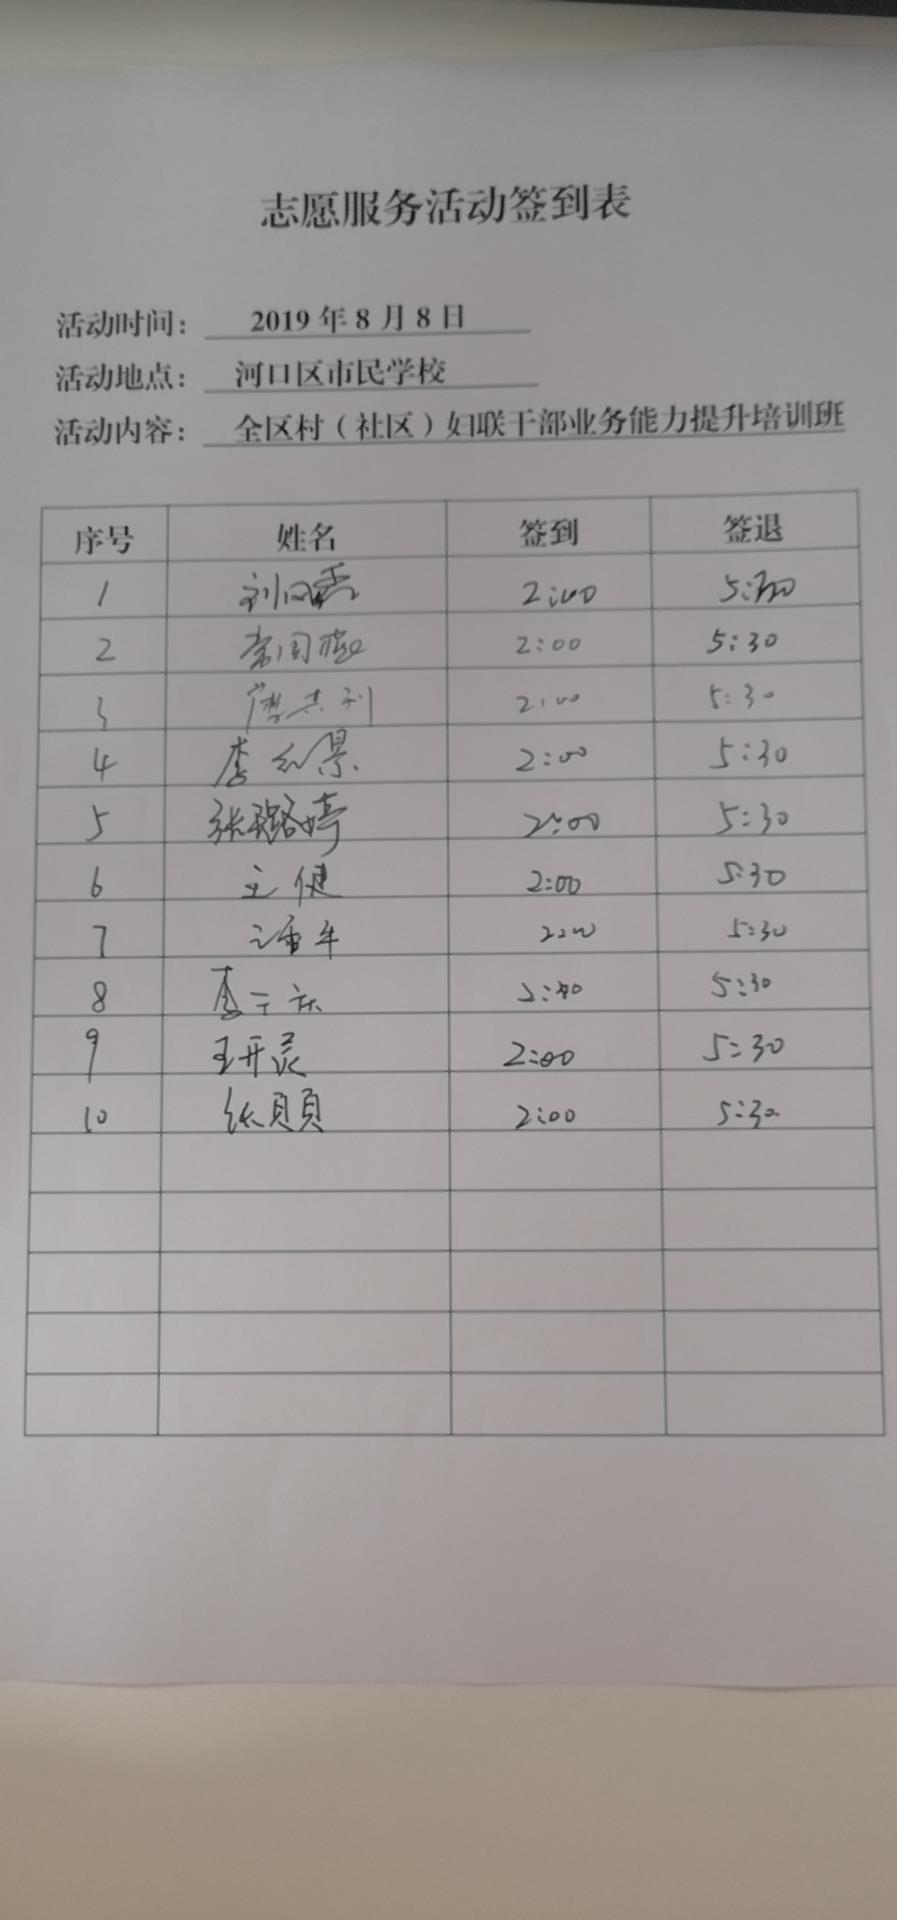 志愿服务活动签到表
活动时间： 2019 年 8 月 8 日
活动地点： 河口区市民学校
活动内容： 全区村（社区）妇联干部业务能力提升培训班
序号 姓名 签到 签退
1 2:00 5:30
2 2:00 5:30
3 2:00 5:30
4 李红景 2:00 5:30
5 张璐婷 2:00 5:30
6 王健 2:00 5:30
7 2:00 5:30
8 5:30
9 王开灵 2:00 5:30
10 张贝贝 2:00 5:30